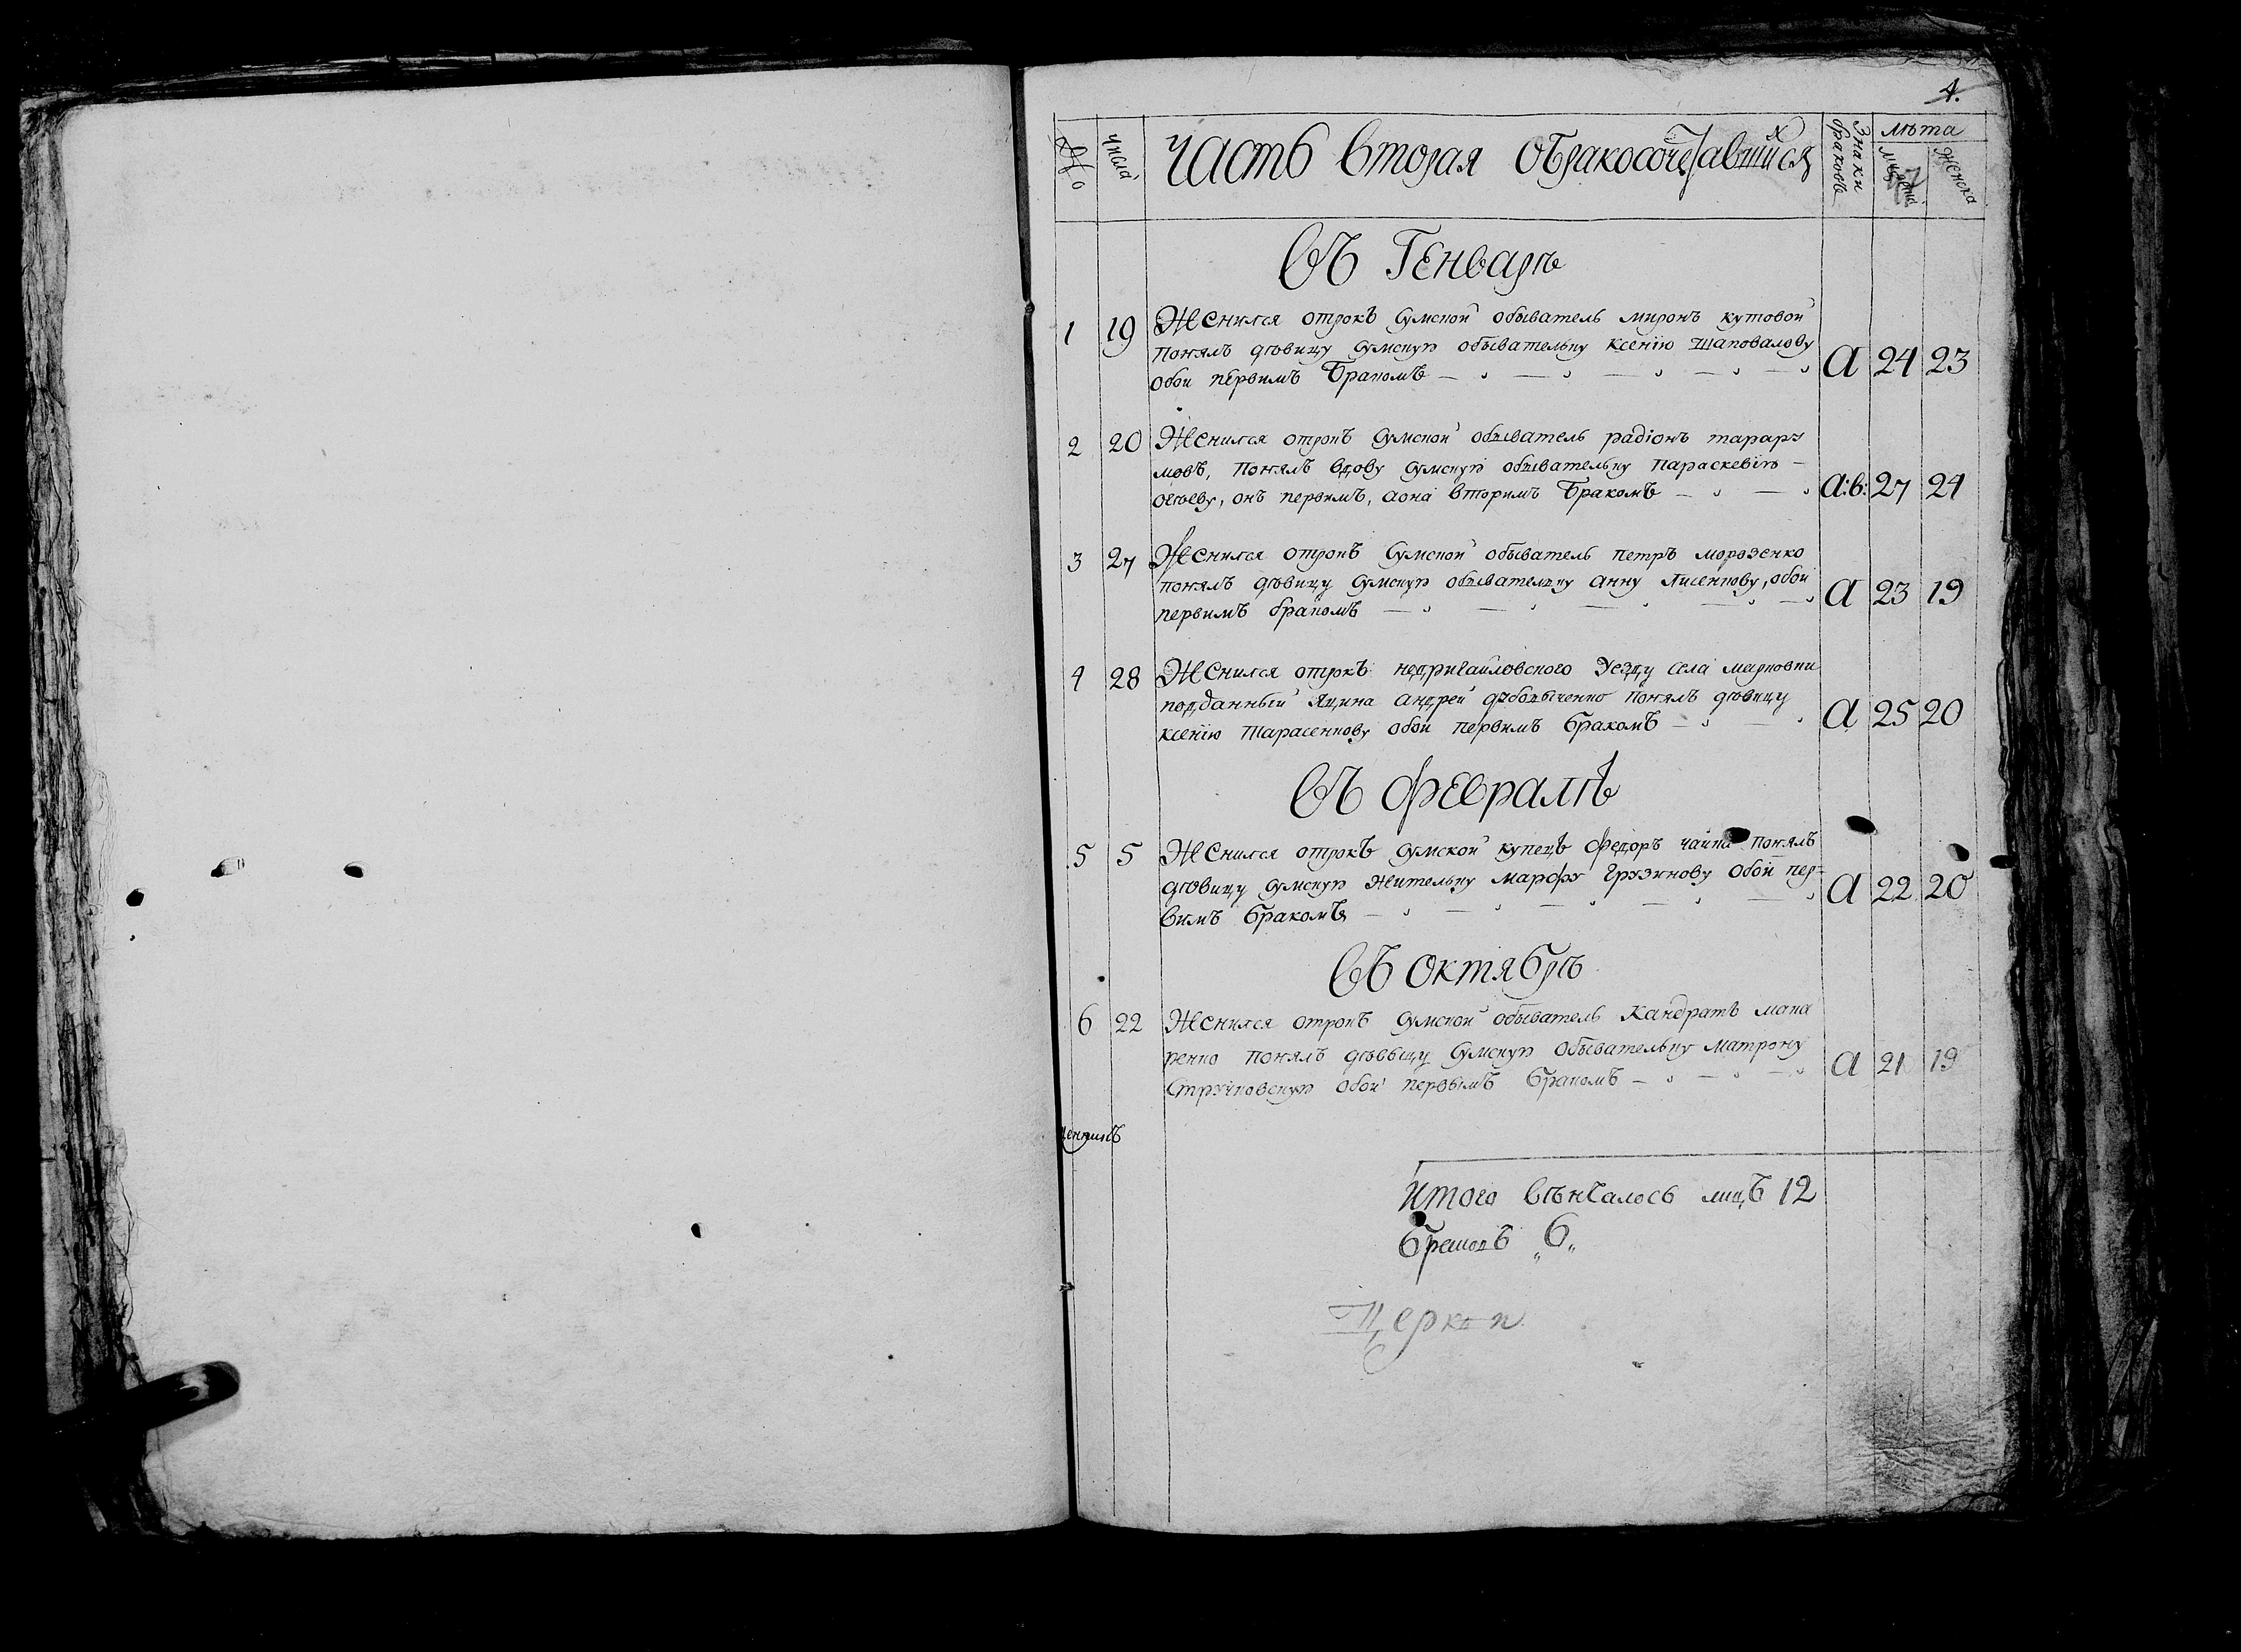 4.
№ числа Часть вторая обракосочетавшихся Знаки браковъ лѣта мужеска женска
Въ Генварѣ
1 19 Женился отрокъ сумской обыватель миронъ кутовой
понялъ дѣвицу сумскую обывательку ксенїю шаповалову
обои первимъ бракомъ А 24 23
2 20 Женился отрокъ сумской обыватель радїонъ тарару
мовъ, понялъ вдову сумскую обывательку параскевїю
он первимъ, аона вторимъ бракомъ а:в: 27 24
3 27 Женился отрокъ сумской обыватель петръ морозенко
понялъ дѣвицу сумскую обывательку анну лисенкову, обои
первимъ бракомъ А 23 19
4 28 Женился отрокъ недригайловского уезду села марковки
подданный андрей понялъ дѣвицу
ксенїю тарасенкову обои первимъ бракомъ А 25 20
Въ февралѣ
5 5 Женился отрокъ сумской купецъ федоръ чайка понялъ
дѣвицу сумскую жительку марфу грузинову обои пер-
вимъ бракомъ А 22 20
Въ октябрѣ
6 22 Женился отрокъ сумской обыватель кандратъ мака
ренко понялъ дѣвыцу сумскую обывательку матрону
стручковскую обои первымъ бракомъ А 21 19
Итого вѣнчалось лицъ 12
браковъ „6„